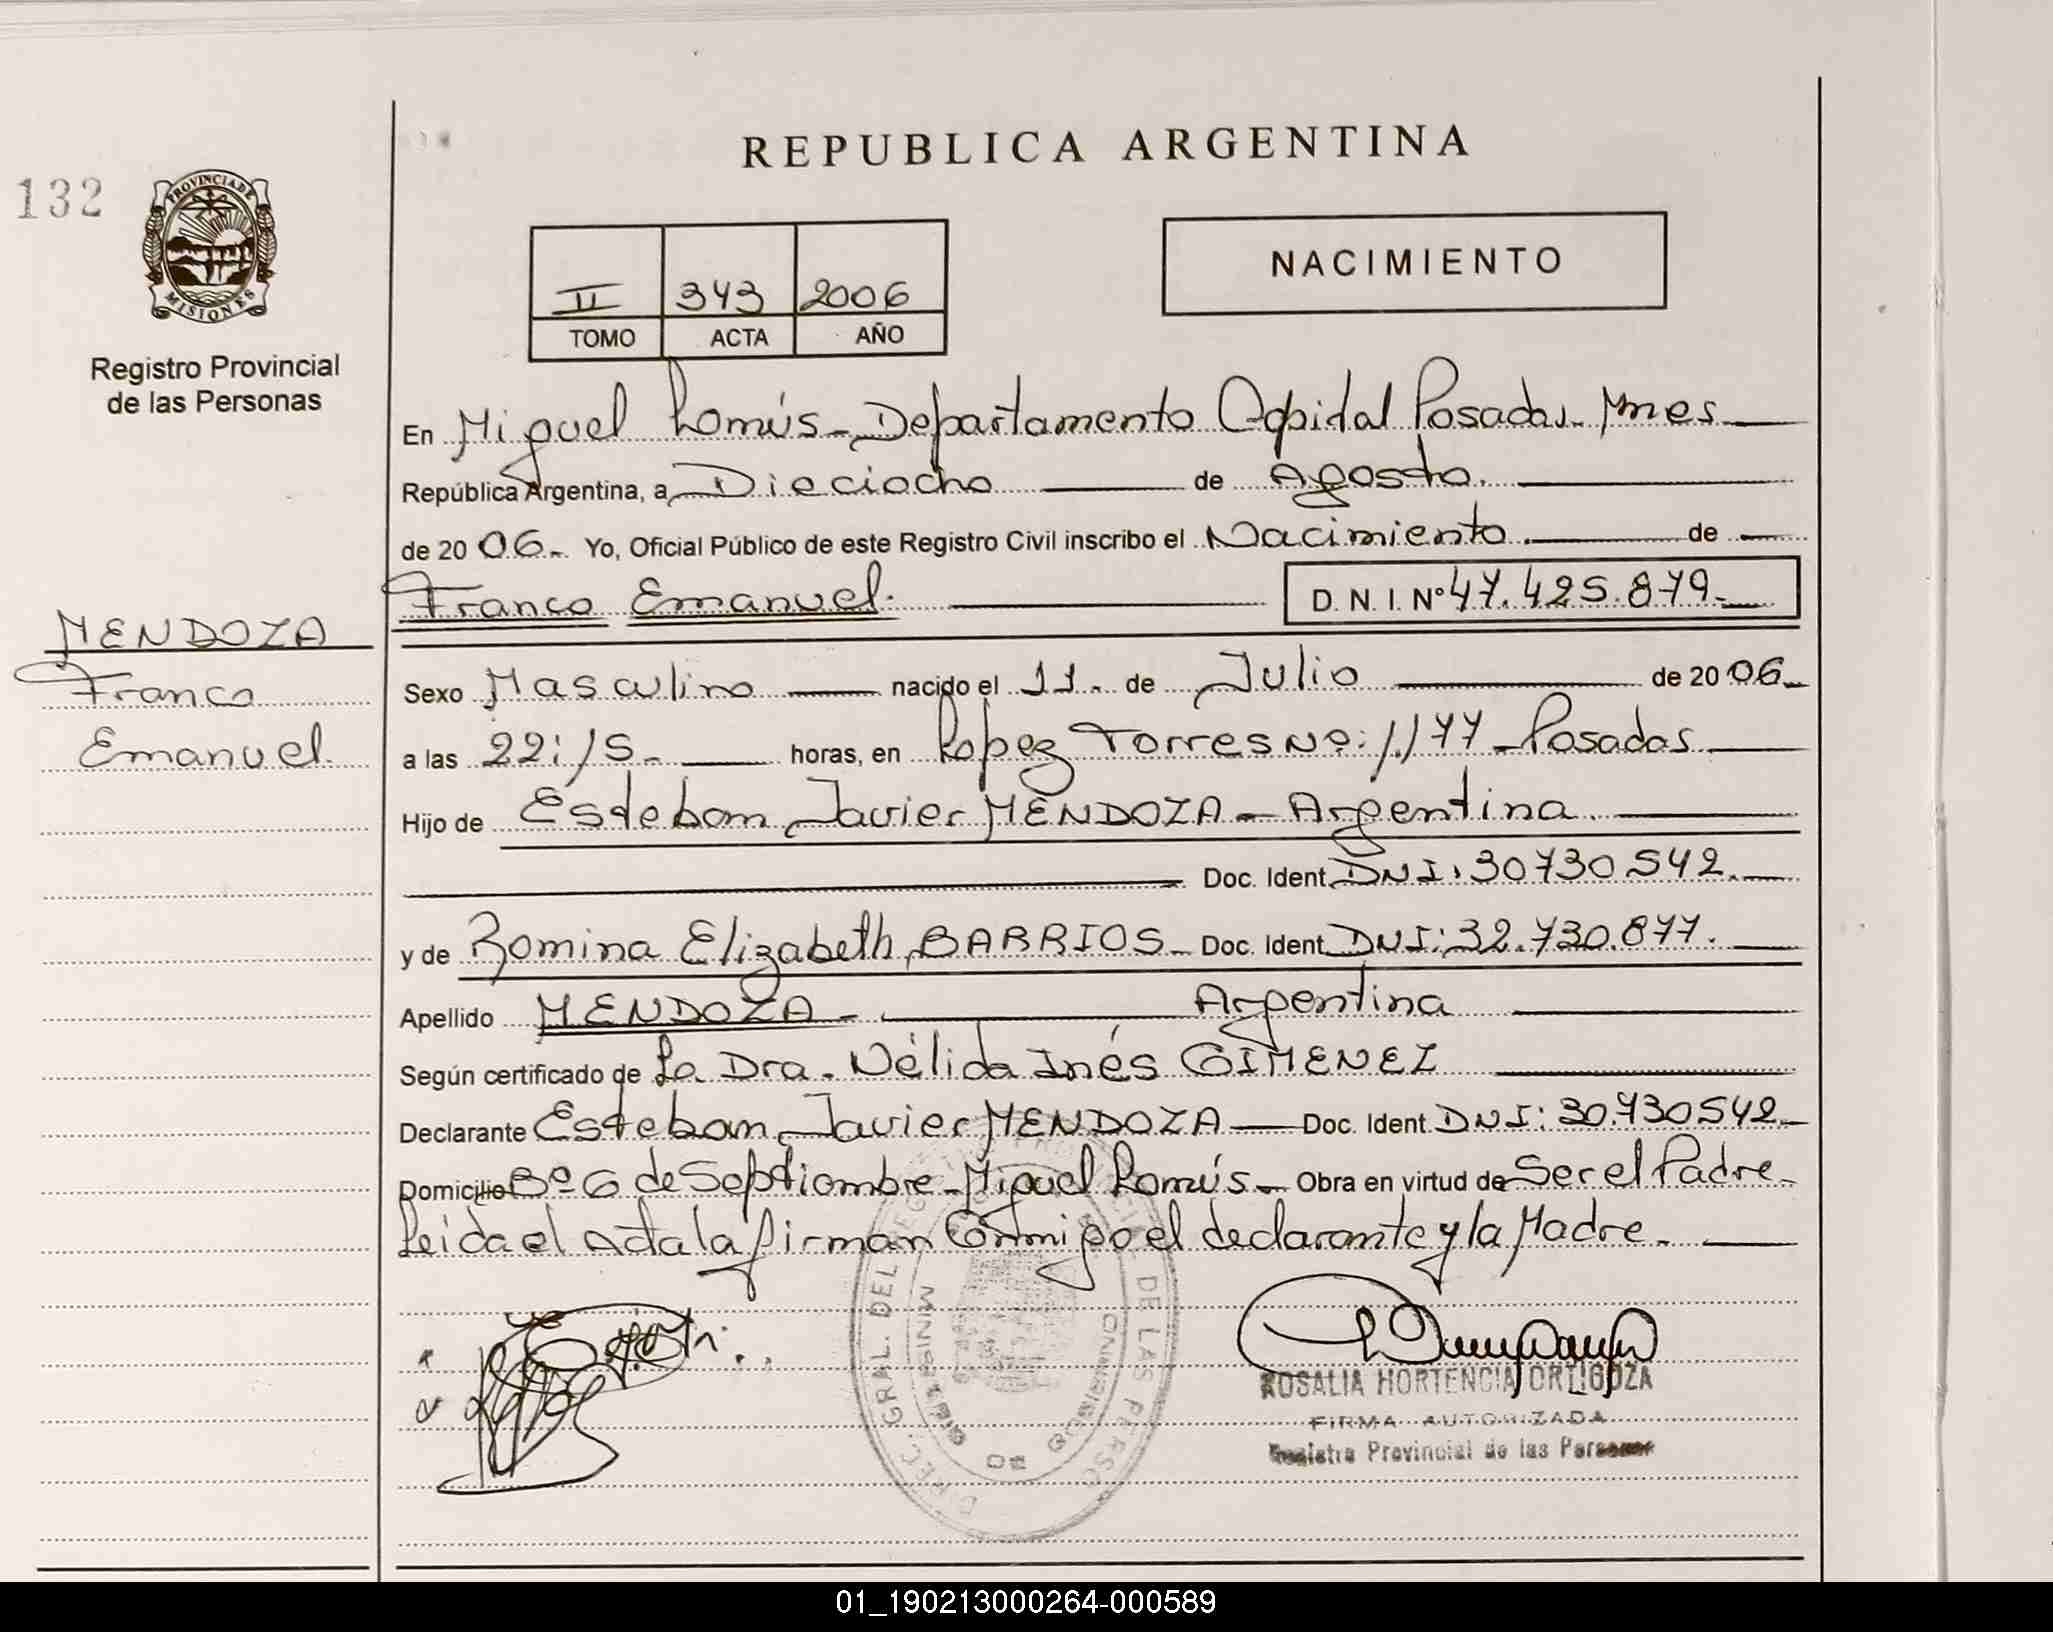 132
PROVINCIA DE
MISIONES
Registro Provincial
de las Personas
MENDOZA
Franco
Emanuel.
REPUBLICA ARGENTINA
II 343 2006
TOMO ACTA AÑO
NACIMIENTO
En Miguel Lanús - Departamento Capital Posadas - Mnes
República Argentina, a Dieciocho de Agosto.
de 20 06.- Yo, Oficial Público de este Registro Civil inscribo el Nacimiento. de
Franco Emanuel. D. N. I. Nº 47.425.879.-
Sexo Masculino nacido el 11.- de Julio de 20 06.-
a las 22:15.- horas, en Lopez Torres Nº: 1.177 - Posadas
Hijo de Esteban Javier MENDOZA - Argentina.
Doc. Ident. DNI: 30730542.
y de Romina Elizabeth BARRIOS - Doc. Ident. DNI: 32.730.877.
Apellido MENDOZA - Argentina
Según certificado de La Dra. Nélida Inés GIMENEZ
Declarante Esteban Javier MENDOZA — Doc. Ident. DNI: 30.730542.-
Domicilio Bº 6 de Septiembre - Miguel Lanús - Obra en virtud de Ser el Padre -
Leida el Acta la firman Conmigo el declarante y la Madre.
DIREC. GRAL. DEL REGISTRO PROVINCIAL DE LAS PERSO
MINISTERIO DE GOBIERNO
ROSALIA HORTENCIA ORTIGOZA
FIRMA AUTORIZADA
Registro Provincial de las Personas
01_190213000264-000589